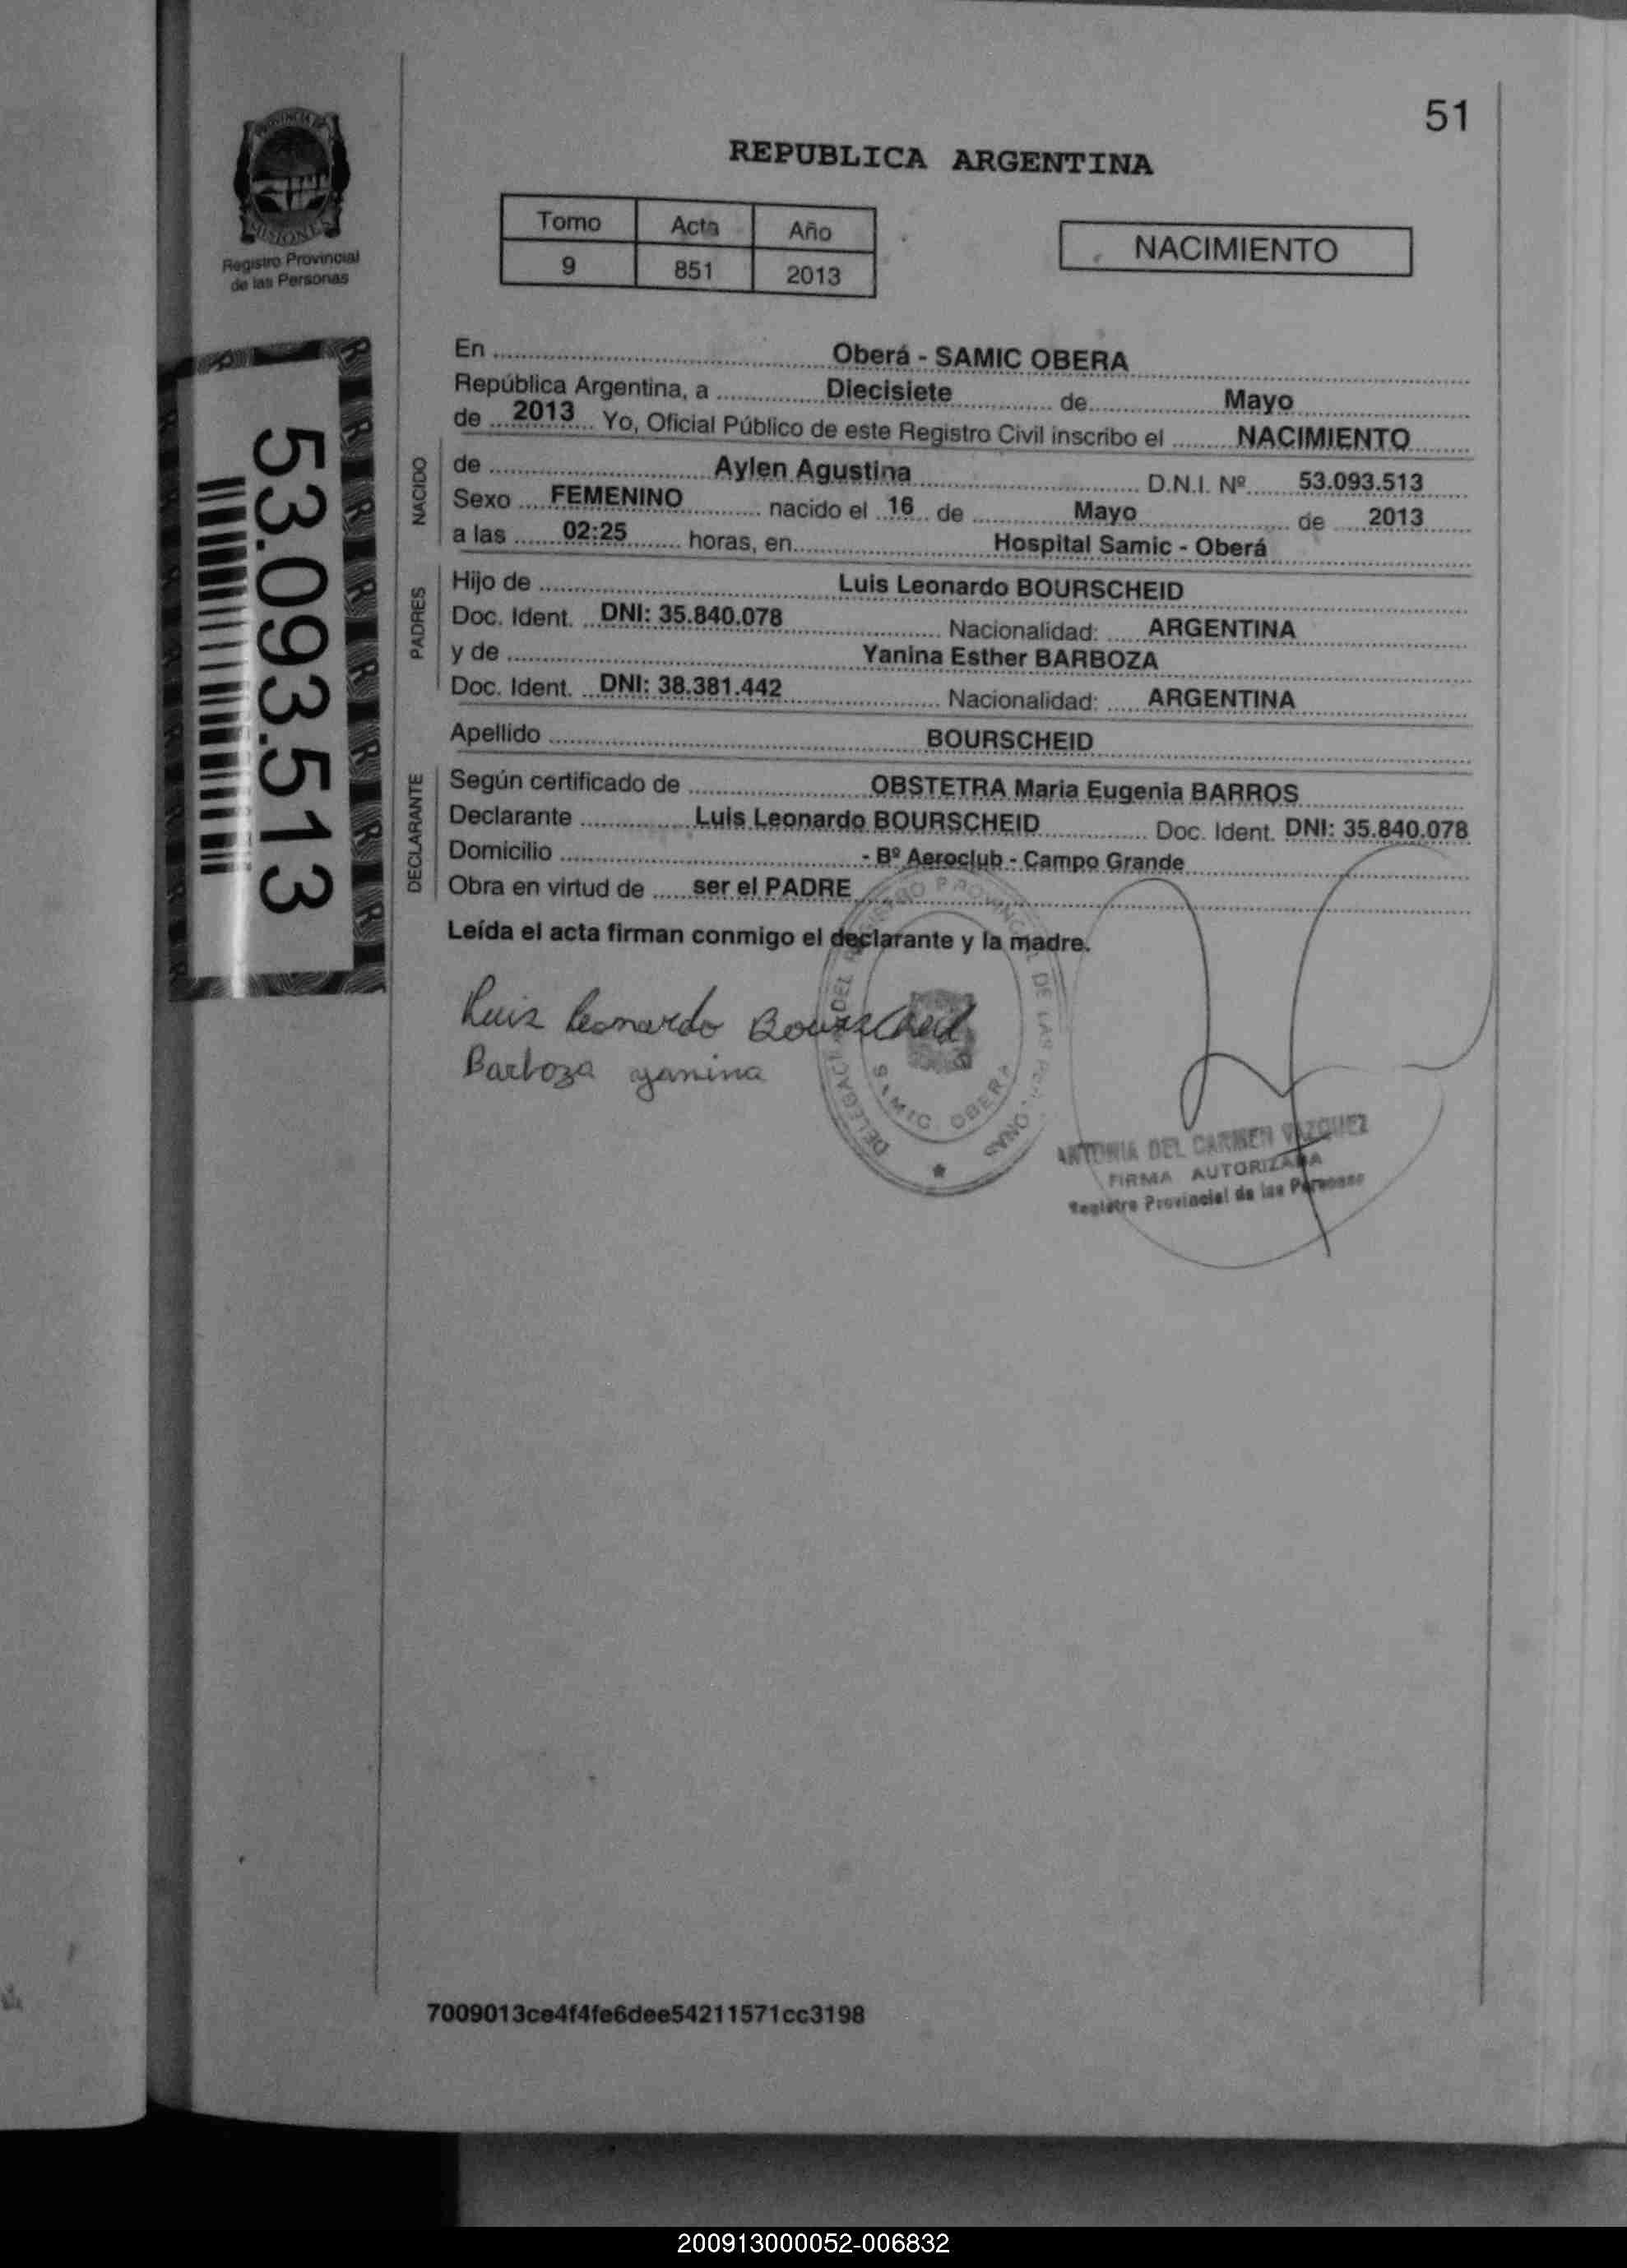 51
REPUBLICA ARGENTINA
PROVINCIA DE
MISIONES
Registro Provincial
de las Personas
Tomo Acta Año
9 851 2013
NACIMIENTO
53.093.513
En Oberá - SAMIC OBERA
República Argentina, a Diecisiete de Mayo
de 2013 Yo, Oficial Público de este Registro Civil inscribo el NACIMIENTO
NACIDO
de Aylen Agustina D.N.I. Nº 53.093.513
Sexo FEMENINO nacido el 16 de Mayo de 2013
a las 02:25 horas, en Hospital Samic - Oberá
PADRES
Hijo de Luis Leonardo BOURSCHEID
Doc. Ident. DNI: 35.840.078 Nacionalidad: ARGENTINA
y de Yanina Esther BARBOZA
Doc. Ident. DNI: 38.381.442 Nacionalidad: ARGENTINA
Apellido BOURSCHEID
DECLARANTE
Según certificado de OBSTETRA Maria Eugenia BARROS
Declarante Luis Leonardo BOURSCHEID Doc. Ident. DNI: 35.840.078
Domicilio - Bº Aeroclub - Campo Grande
Obra en virtud de ser el PADRE
Leída el acta firman conmigo el declarante y la madre.
Luis Leonardo Bourscheid
Barboza yanina
DELEGACION DEL REGISTRO PROVINCIAL DE LAS PERSONAS
SAMIC OBERA
ANTONIA DEL CARMEN VAZQUEZ
FIRMA AUTORIZADA
Registro Provincial de las Personas
7009013ce4f4fe6dee54211571cc3198
200913000052-006832